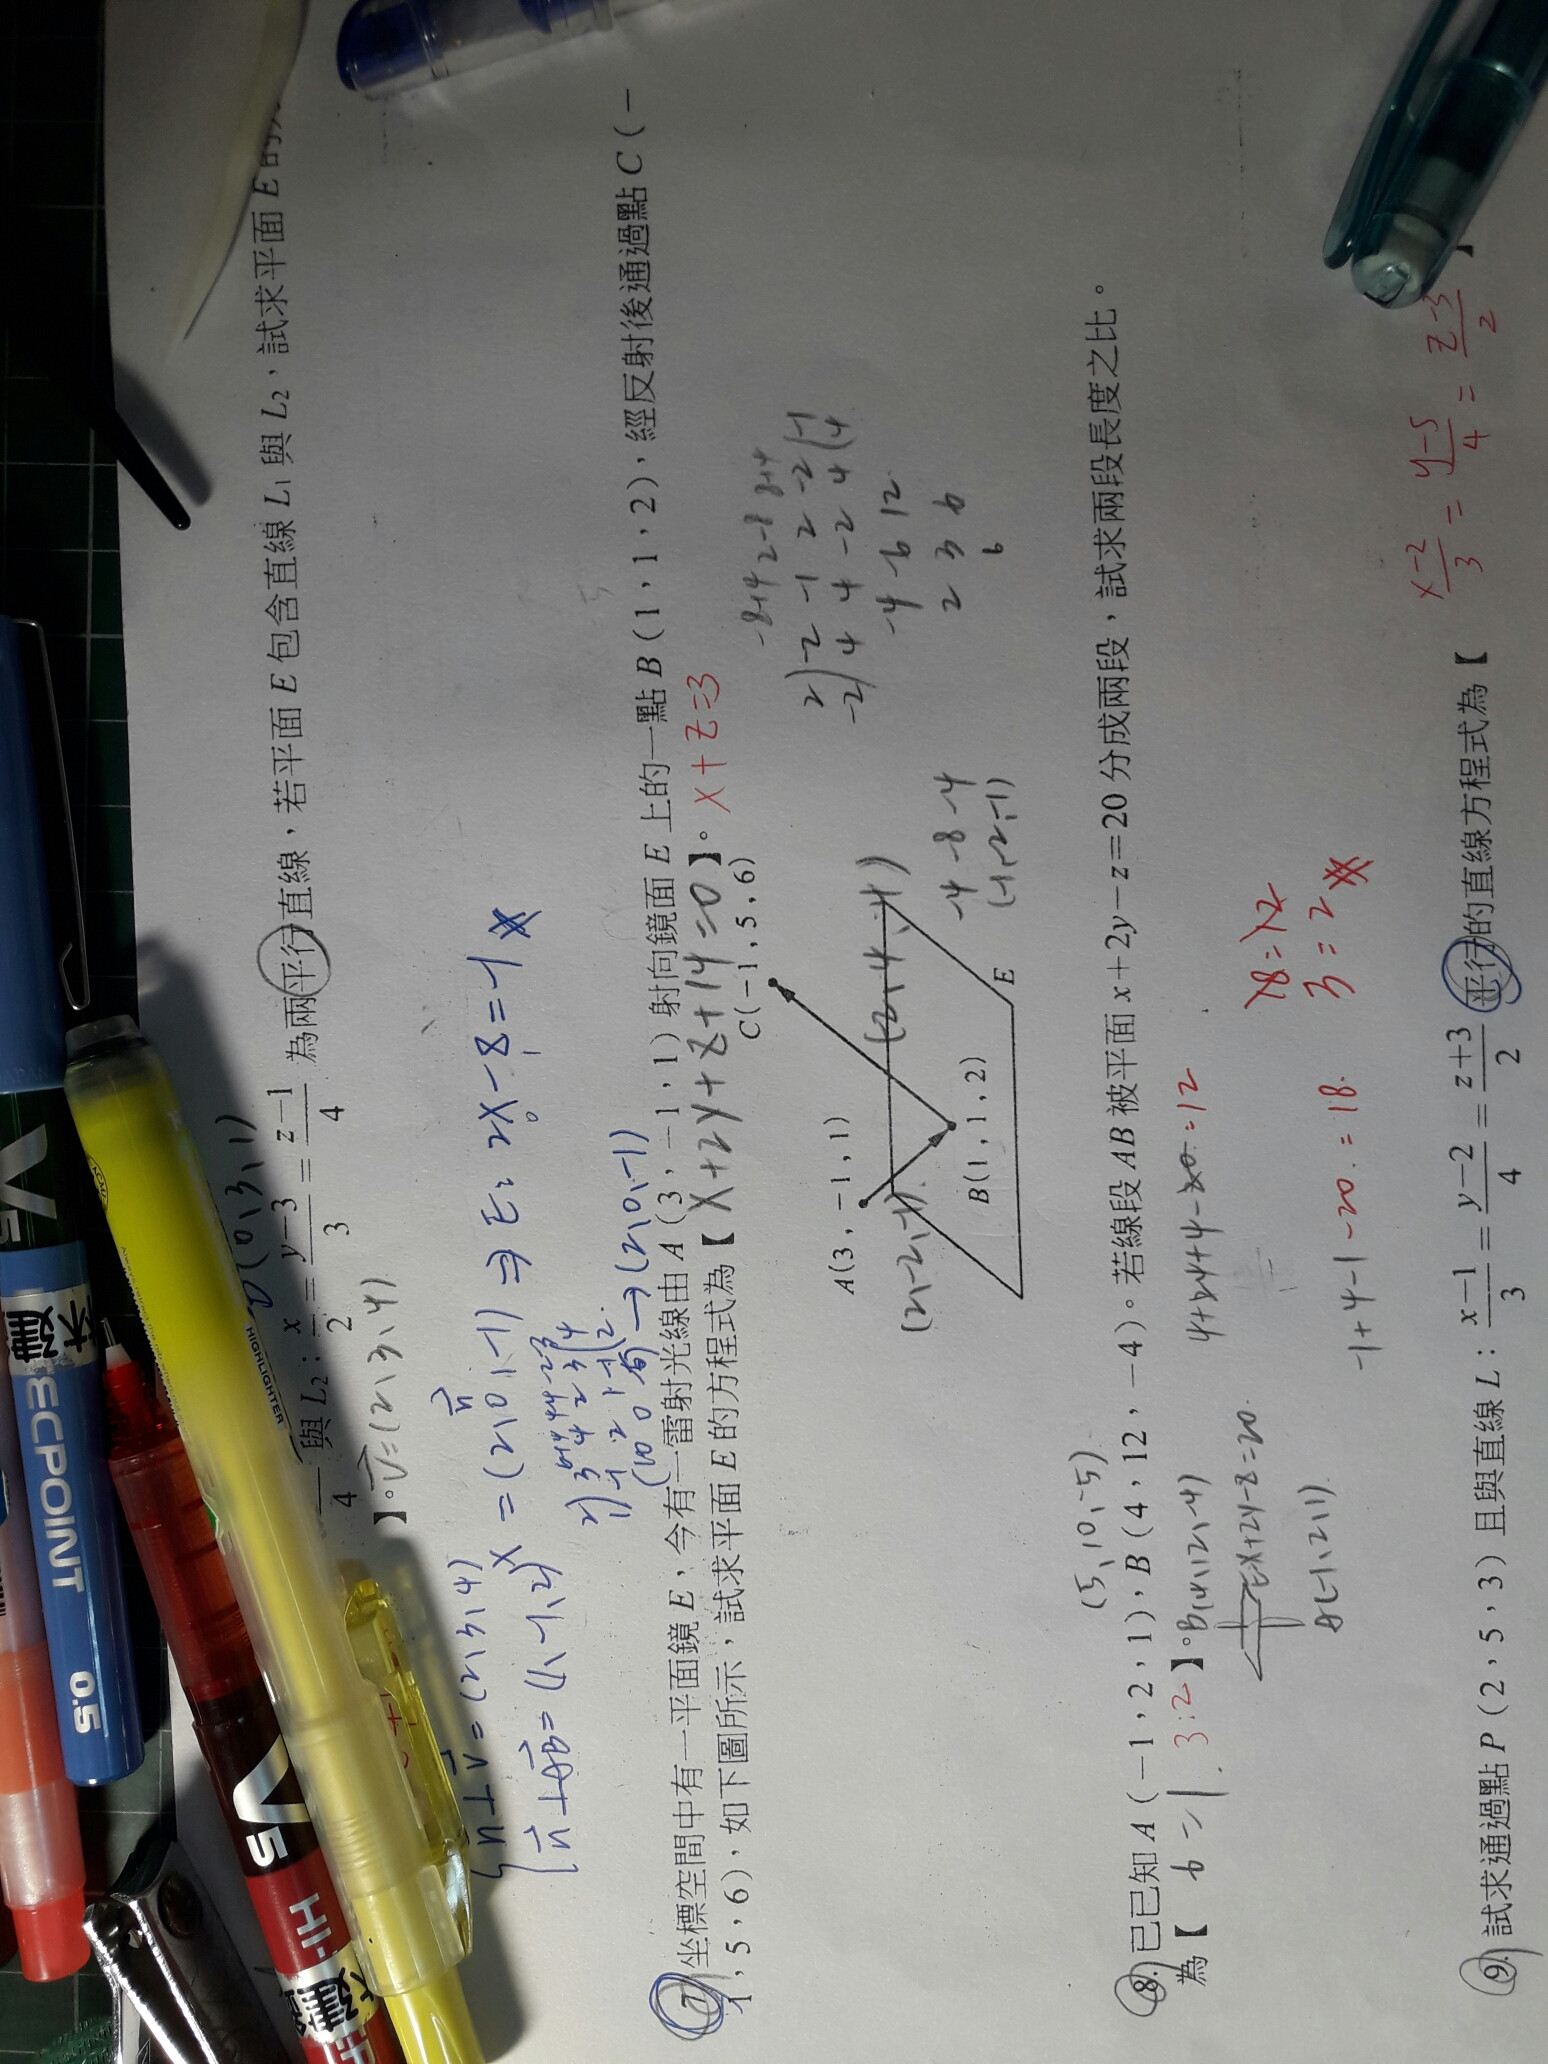 4 與 L₂：x/2 = y−3/3 = z−1/4 為兩平行直線，若平面 E 包含直線 L₁ 與 L₂，試求平面 E 的
】。
V=(2,3,4)
(0,3,1)
n⊥V=(2,3,4)
n⊥AB=(1,-1,2) = (2,0,-1) ⇒ E: 2x-z=-1
→(2,0,-1)
7. 坐標空間中有一平面鏡 E，今有一雷射光線由 A（3，−1，1）射向鏡面 E 上的一點 B（1，1，2），經反射後通過點 C（−
1，5，6），如下圖所示，試求平面 E 的方程式為【 x+2y+z+14=0 】。 x+z=3
A(3，−1，1)
C(−1，5，6)
B(1，1，2)
E
(2,-2,-1)
(-2,4,4)
2 -1 2 -2 -1
4 4 -2 4 4
-4 -6 12
2 3 6
6
-4 -8 -4
(-1,-2,-1)
8. 已已知 A（−1，2，1），B（4，12，−4）。若線段 AB 被平面 x＋2y−z＝20 分成兩段，試求兩段長度之比。
為【 6=1 3:2 】。
(5,10,-5)
B(4,12,-4)
4+24+4-20=12
A(-1,2,1)
-1+4-1-20=18
18=12
3=2
9. 試求通過點 P（2，5，3）且與直線 L：x−1/3 = y−2/4 = z+3/2 平行的直線方程式為【 x-2/3 = y-5/4 = z-3/2 】
V5
HI-
TECPOINT
0.5
V5
HIGHLIGHTER